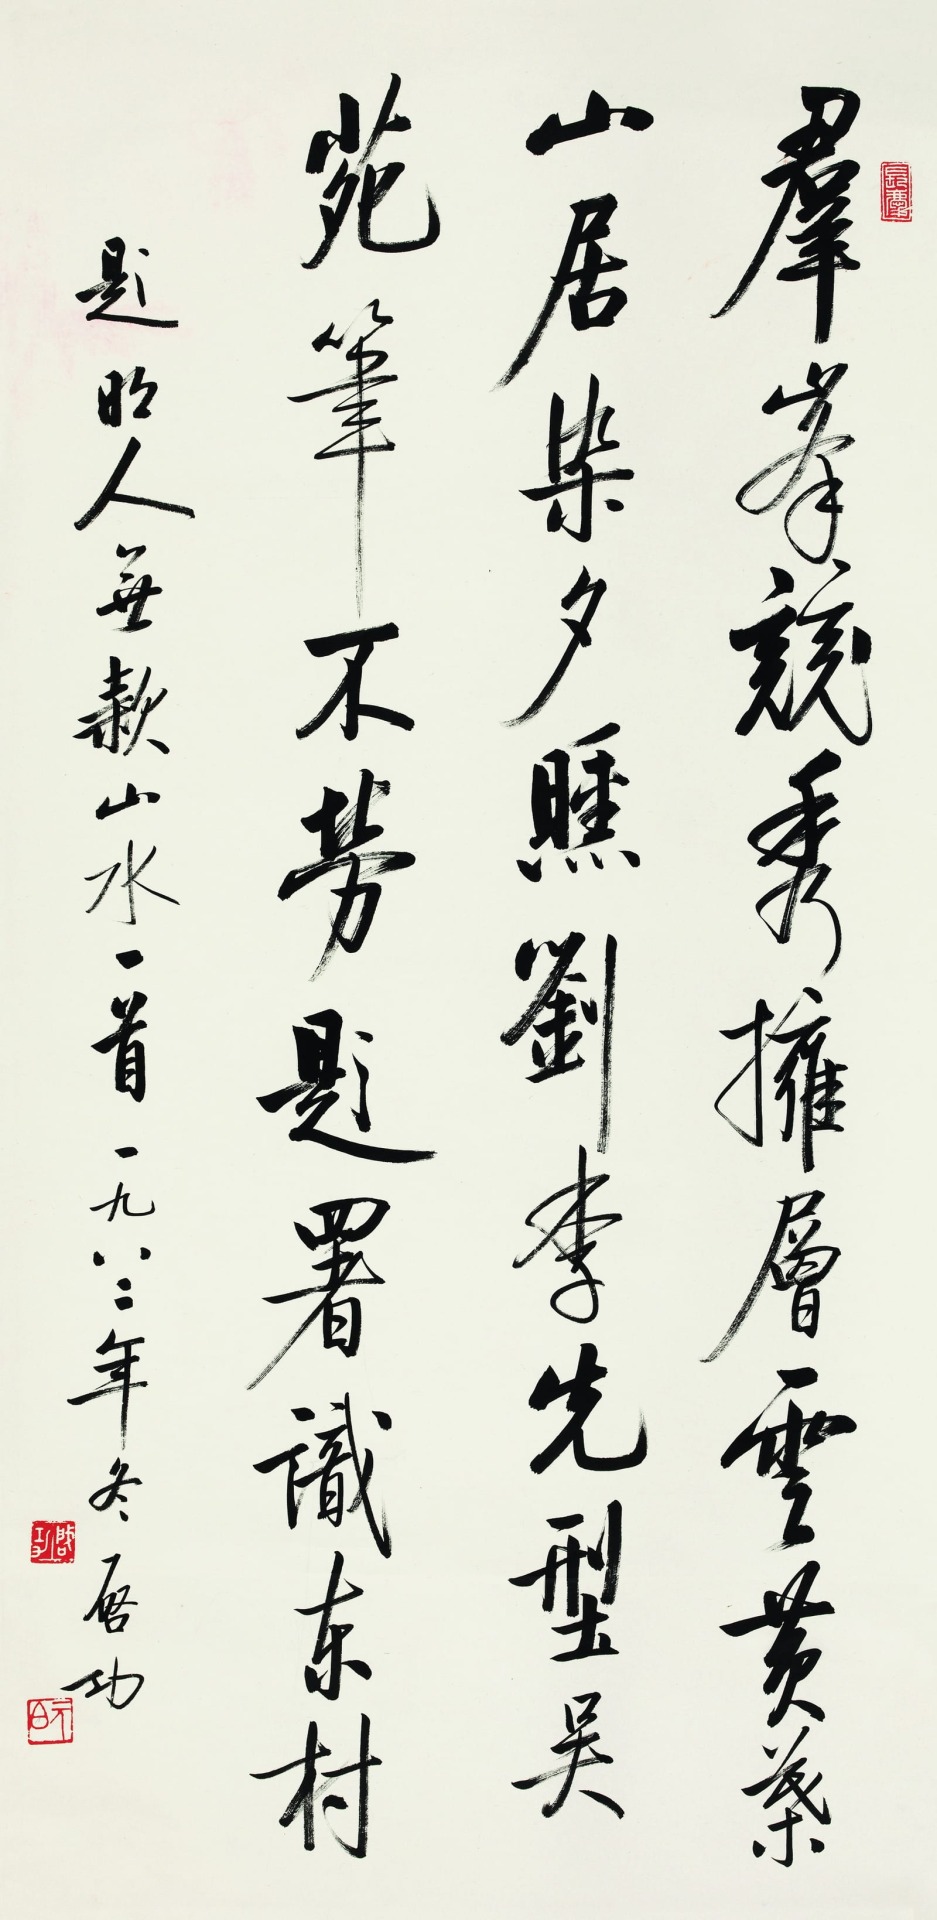 羣峯競秀擁層雲黃葉
山居染夕曛劉李先型吳
苑筆不勞題署識东村
題明人無款山水一首 一九八二年冬 启功
启功
元白